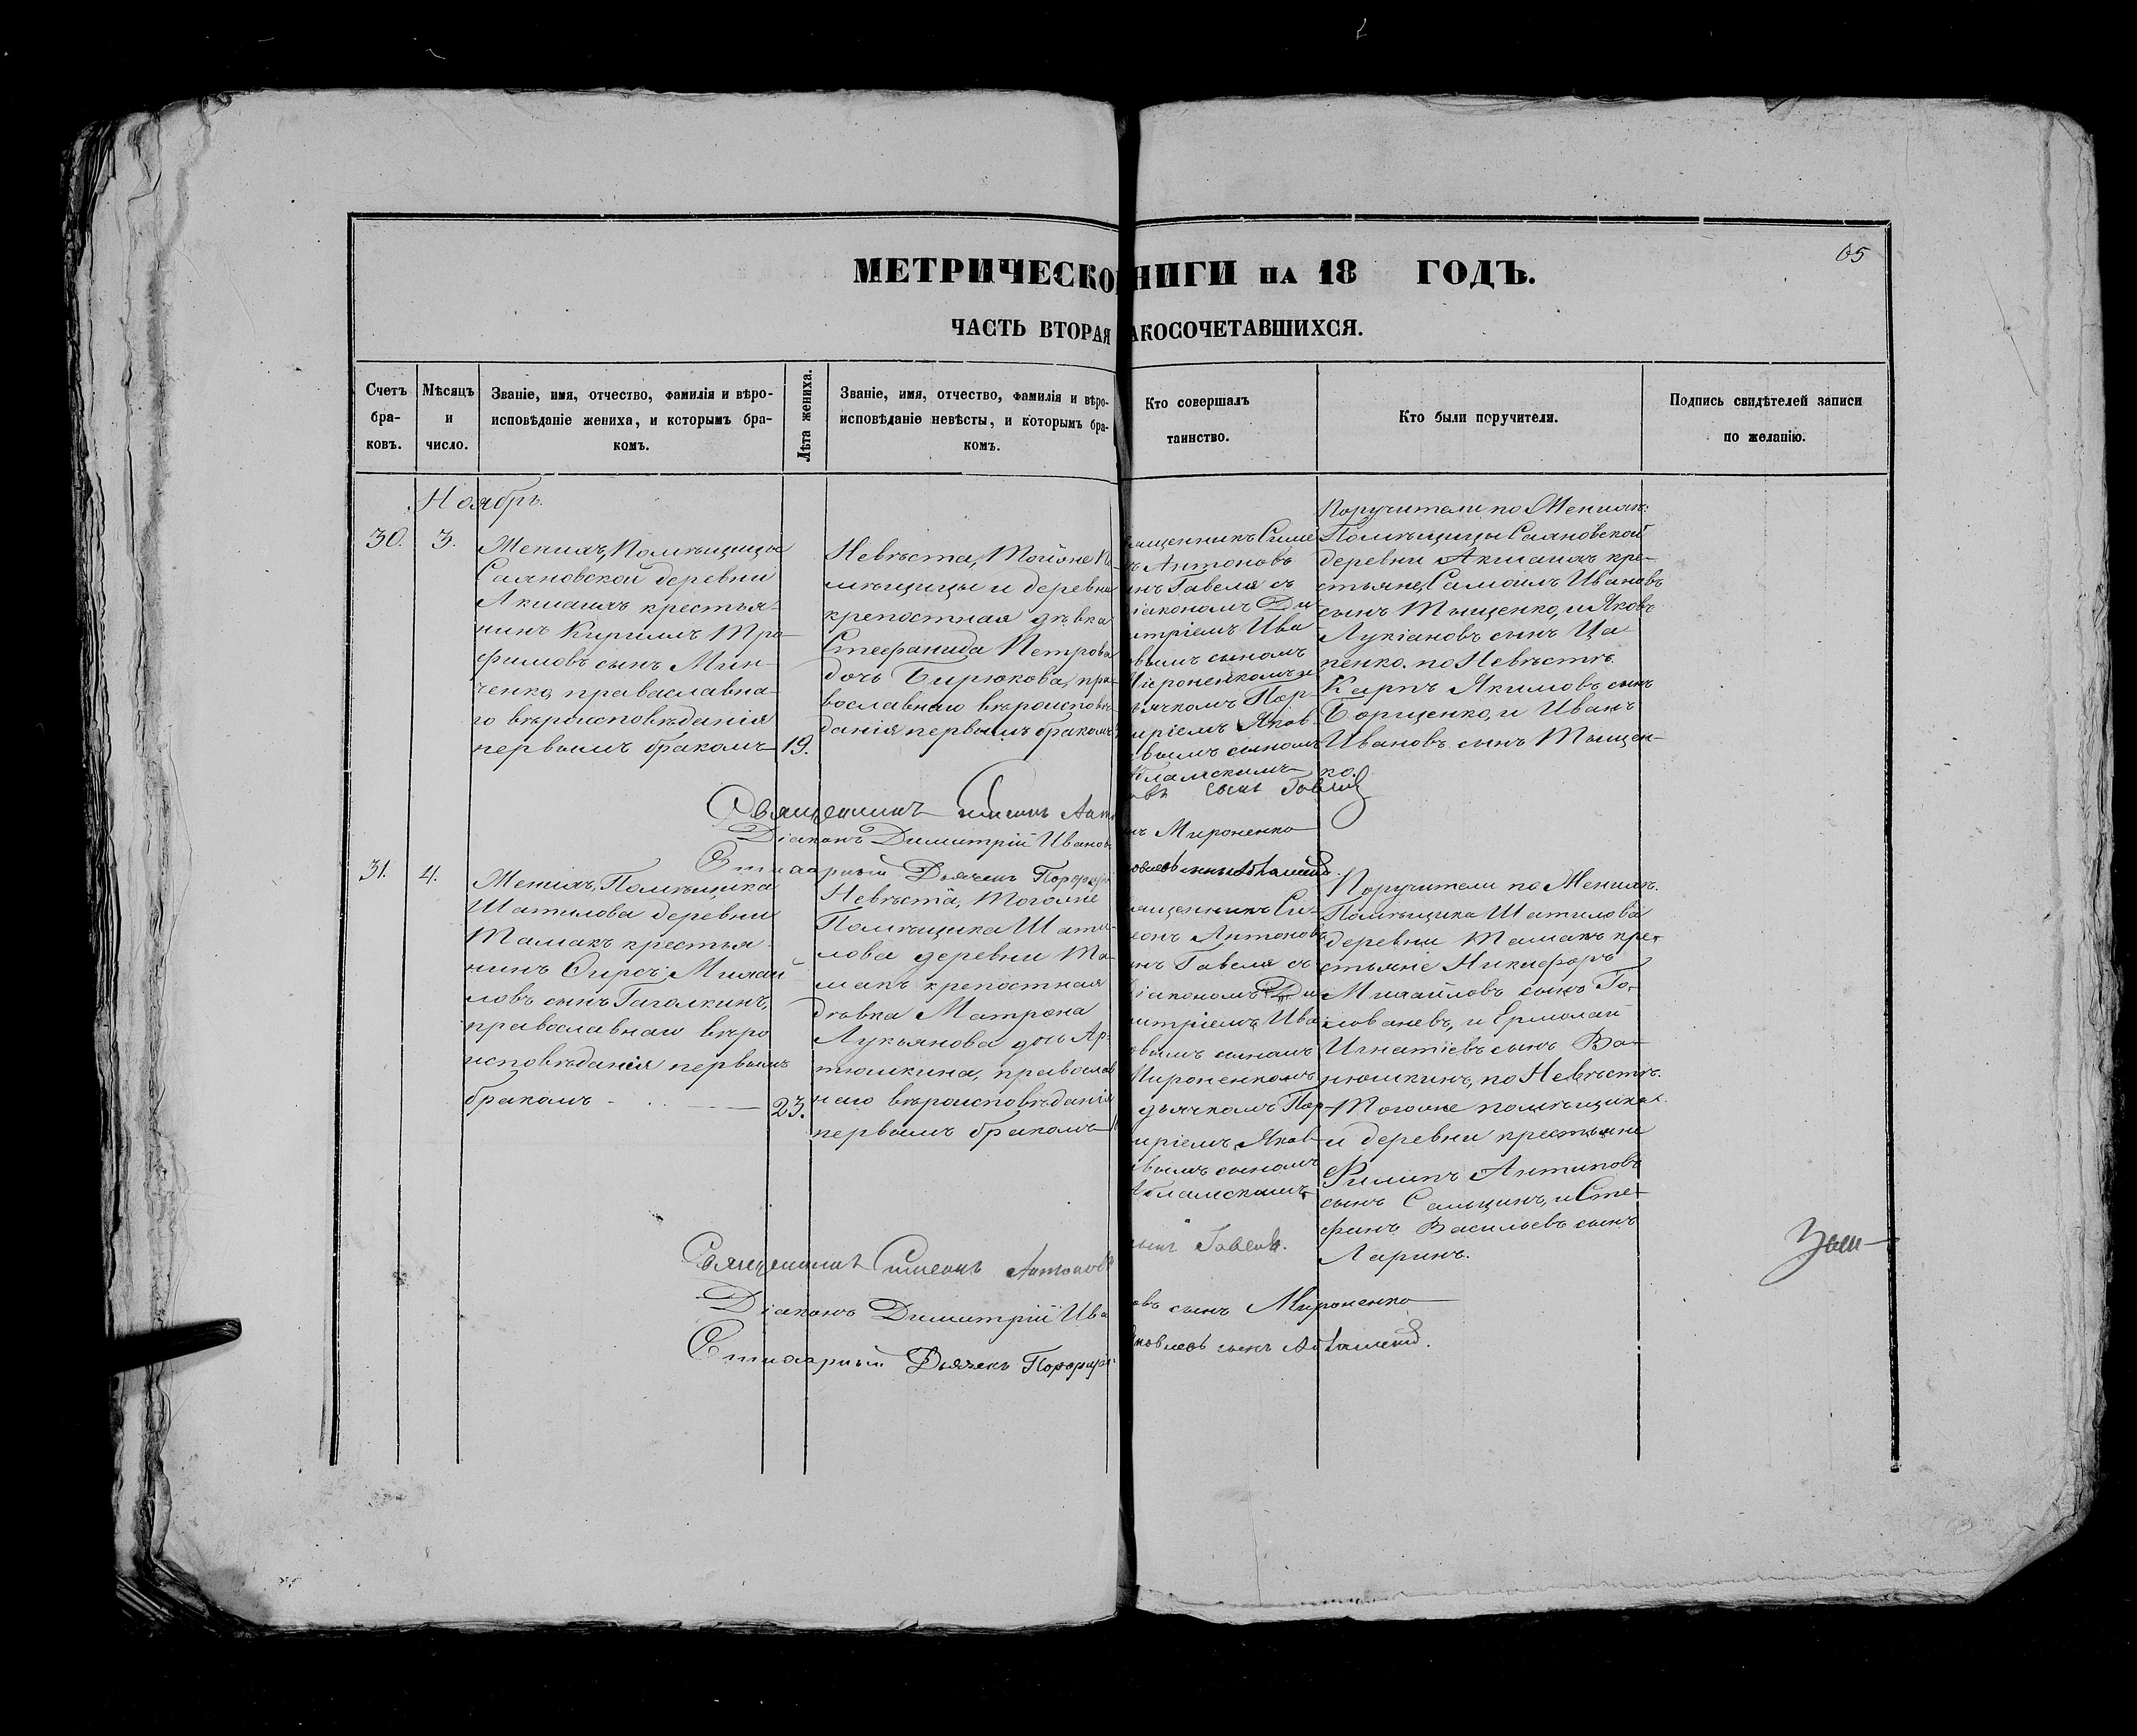 65
МЕТРИЧЕСКО НИГИ НА 18 ГОДЪ.
ЧАСТЬ ВТОРАЯ АКОСОЧЕТАВШИХСЯ.
Счетъ бра- ковъ.
Мѣсяцъ и число.
Званіе, имя, отчество, фамилія и вѣро-
исповѣданіе жениха, и которымъ бра-
комъ.
Лѣта жениха.
Званіе, имя, отчество, фамилія и вѣро-
исповѣданіе невѣсты, и которымъ бра-
комъ.
Кто совершалъ
таинство.
Кто были поручители.
Подпись свидѣтелей записи
по желанію.
Ноябрь.
30. 3.
Женихъ, Помѣщицы
Саяновской деревни
Акманахъ крестья-
нинъ Кирилъ Тро-
фимовъ сынъ Мин-
ченко, православна-
го вѣроисповѣданія
первымъ бракомъ
19.
Невѣста, Тойже По
мѣщицы и деревни
крепостная дѣвка
Стефанида Петрова
дочь Бирюкова, пра-
вославнаго вѣроисповѣ-
данія первымъ бракомъ
ященникъ Симе
ъ Антоновъ
нъ Гавеля съ
іакономъ Ди-
итріемъ Ива
овымъ сыномъ
Мироненкомъ и
ьячкомъ Пор-
иріемъ Яков-
евымъ сыномъ
Абламскимъ
Поручители по Женихѣ:
Помѣщицы Саяновской
деревни Акманахъ кре-
стьяне, Самоилъ Ивановъ
сынъ Тыщенко, и Яковъ
Лукіановъ сынъ Ца-
пенко. по Невѣстѣ
Карпъ Якимовъ сынъ
Борщенко, и Иванъ
Ивановъ сынъ Тыщен-
ко.
Священникъ Симеонъ Анто овъ сынъ Гавеля
Діаконъ Димитрій Иванов нъ Мироненко
Стихарный Дьячекъ Порфирі овлевъ сынъ Абламскій.
31. 4.
Женихъ, Помѣщика
Шатилова деревни
Тамакъ крестья-
нинъ Фирсъ Михай-
ловъ сынъ Гагалкинъ,
православнаго вѣро
исповѣданія первымъ
бракомъ
23.
Невѣста, Тогоже
Помѣщика Шати-
лова деревни Та-
макъ крепостная
дѣвка Матрона
Лукьянова дочь Ар-
тюшкина, православ
наго вѣроисповѣданія
первымъ бракомъ
ященникъ Си-
еонъ Антоновъ
нъ Гавеля съ
Діакономъ Ди
итріемъ Ива
овымъ сыномъ
Мироненкомъ
дьячкомъ Пор-
иріемъ Яков-
евымъ сыномъ
Абламскимъ
Поручители по Женихѣ.
Помѣщика Шатилова
деревни Тамакъ кре-
стьяне Никифоръ
Михайловъ сынъ Го-
ловачевъ, и Ермолай
Игнатіевъ сынъ Ва-
нюшкинъ, по Невѣстѣ.
Тогоже помѣщика
и деревни крестьяне
Филипъ Антиповъ
сынъ Сальцинъ, и Сте-
фанъ Васильевъ сынъ
Ларинъ.
Священникъ Симеонъ Антоновъ сынъ Гавеля.
Діаконъ Димитрій Ива овъ сынъ Мироненко
Стихарный Дьячекъ Порфирі яковлевъ сынъ Абламскій.